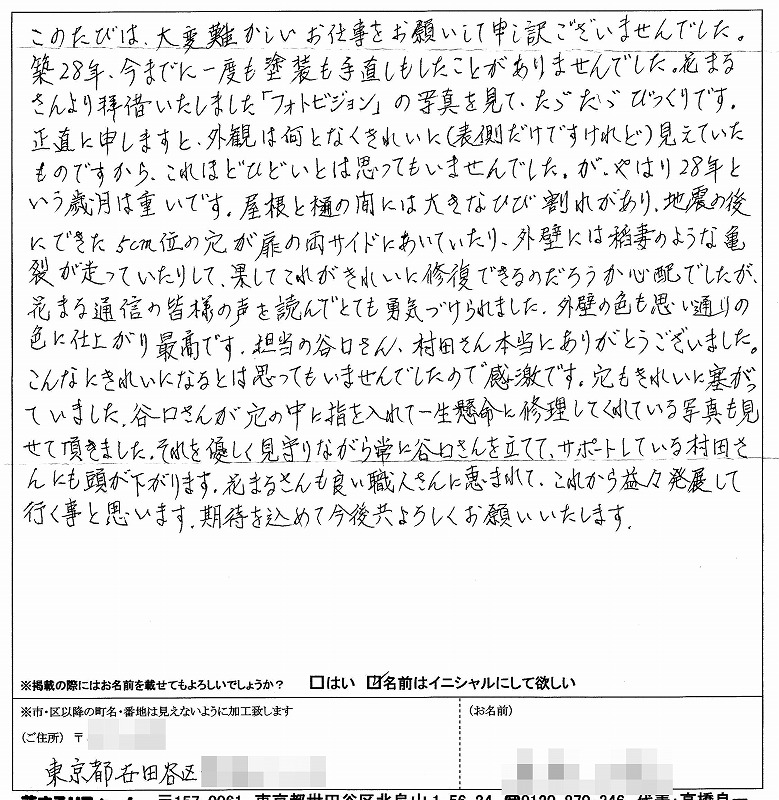 このたびは、大変難かしいお仕事をお願いして申し訳ございませんでした。
築28年、今までに一度も塗装も手直しもしたことがありませんでした。花まる
さんより拝借いたしました「フォトビジョン」の写真を見て、ただただびっくりです。
正直に申しますと、外観は何となくきれいに(表側だけですけれど)見えていた
ものですから、これほどひどいとは思ってもいませんでした。が、やはり28年と
いう歳月は重いです。屋根と樋の間には大きなひび割れがあり、地震の後
にできた5cm位の穴が扉の両サイドにあいていたり、外壁には稲妻のような亀
裂が走っていたりして、果してこれがきれいに修復できるのだろうか心配でしたが、
花まる通信の皆様の声を読んでとても勇気づけられました。外壁の色も思い通りの
色に仕上がり最高です。担当の谷口さん、村田さん本当にありがとうございました。
こんなにきれいになるとは思ってもいませんでしたので感激です。穴もきれいに塞がっ
ていました。谷口さんが穴の中に指を入れて一生懸命に修理してくれている写真も見
せて頂きました。それを優しく見守りながら常に谷口さんを立てて、サポートしている村田さ
んにも頭が下がります。花まるさんも良い職人さんに恵まれて、これから益々発展して
行く事と思います。期待を込めて今後共よろしくお願いいたします。
※掲載の際にはお名前を載せてもよろしいでしょうか? □はい ☑名前はイニシャルにして欲しい
※市・区以降の町名・番地は見えないように加工致します
(お名前)
(ご住所) 〒
東京都世田谷区